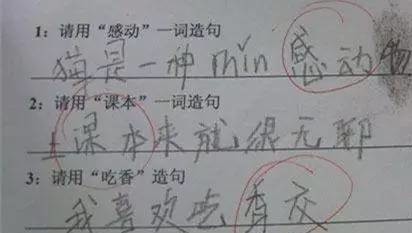 1：请用“感动”一词造句
猫是一种mǐn感动物
2：请用“课本”一词造句
上课本来就很无聊
3：请用“吃香”造句
我喜欢吃香交